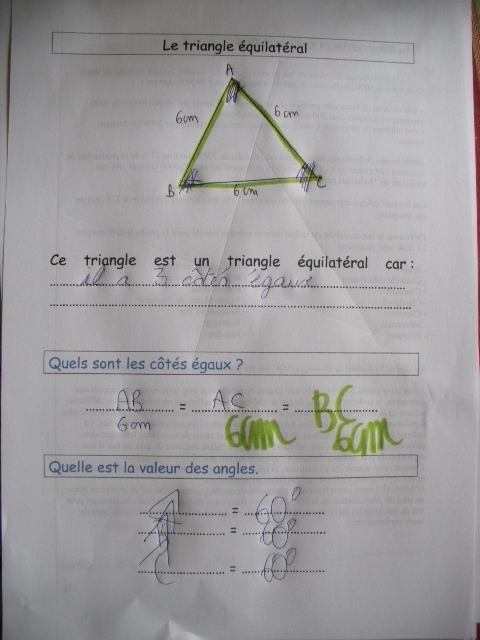 Le triangle équilatéral
A
6cm 6cm
B 6cm C
Ce triangle est un triangle équilatéral car :
il a 3 côtés égaux
Quels sont les côtés égaux ?
AB = AC = BC
6cm 6cm 6cm
Quelle est la valeur des angles.
= 60°
= 60°
C = 60°